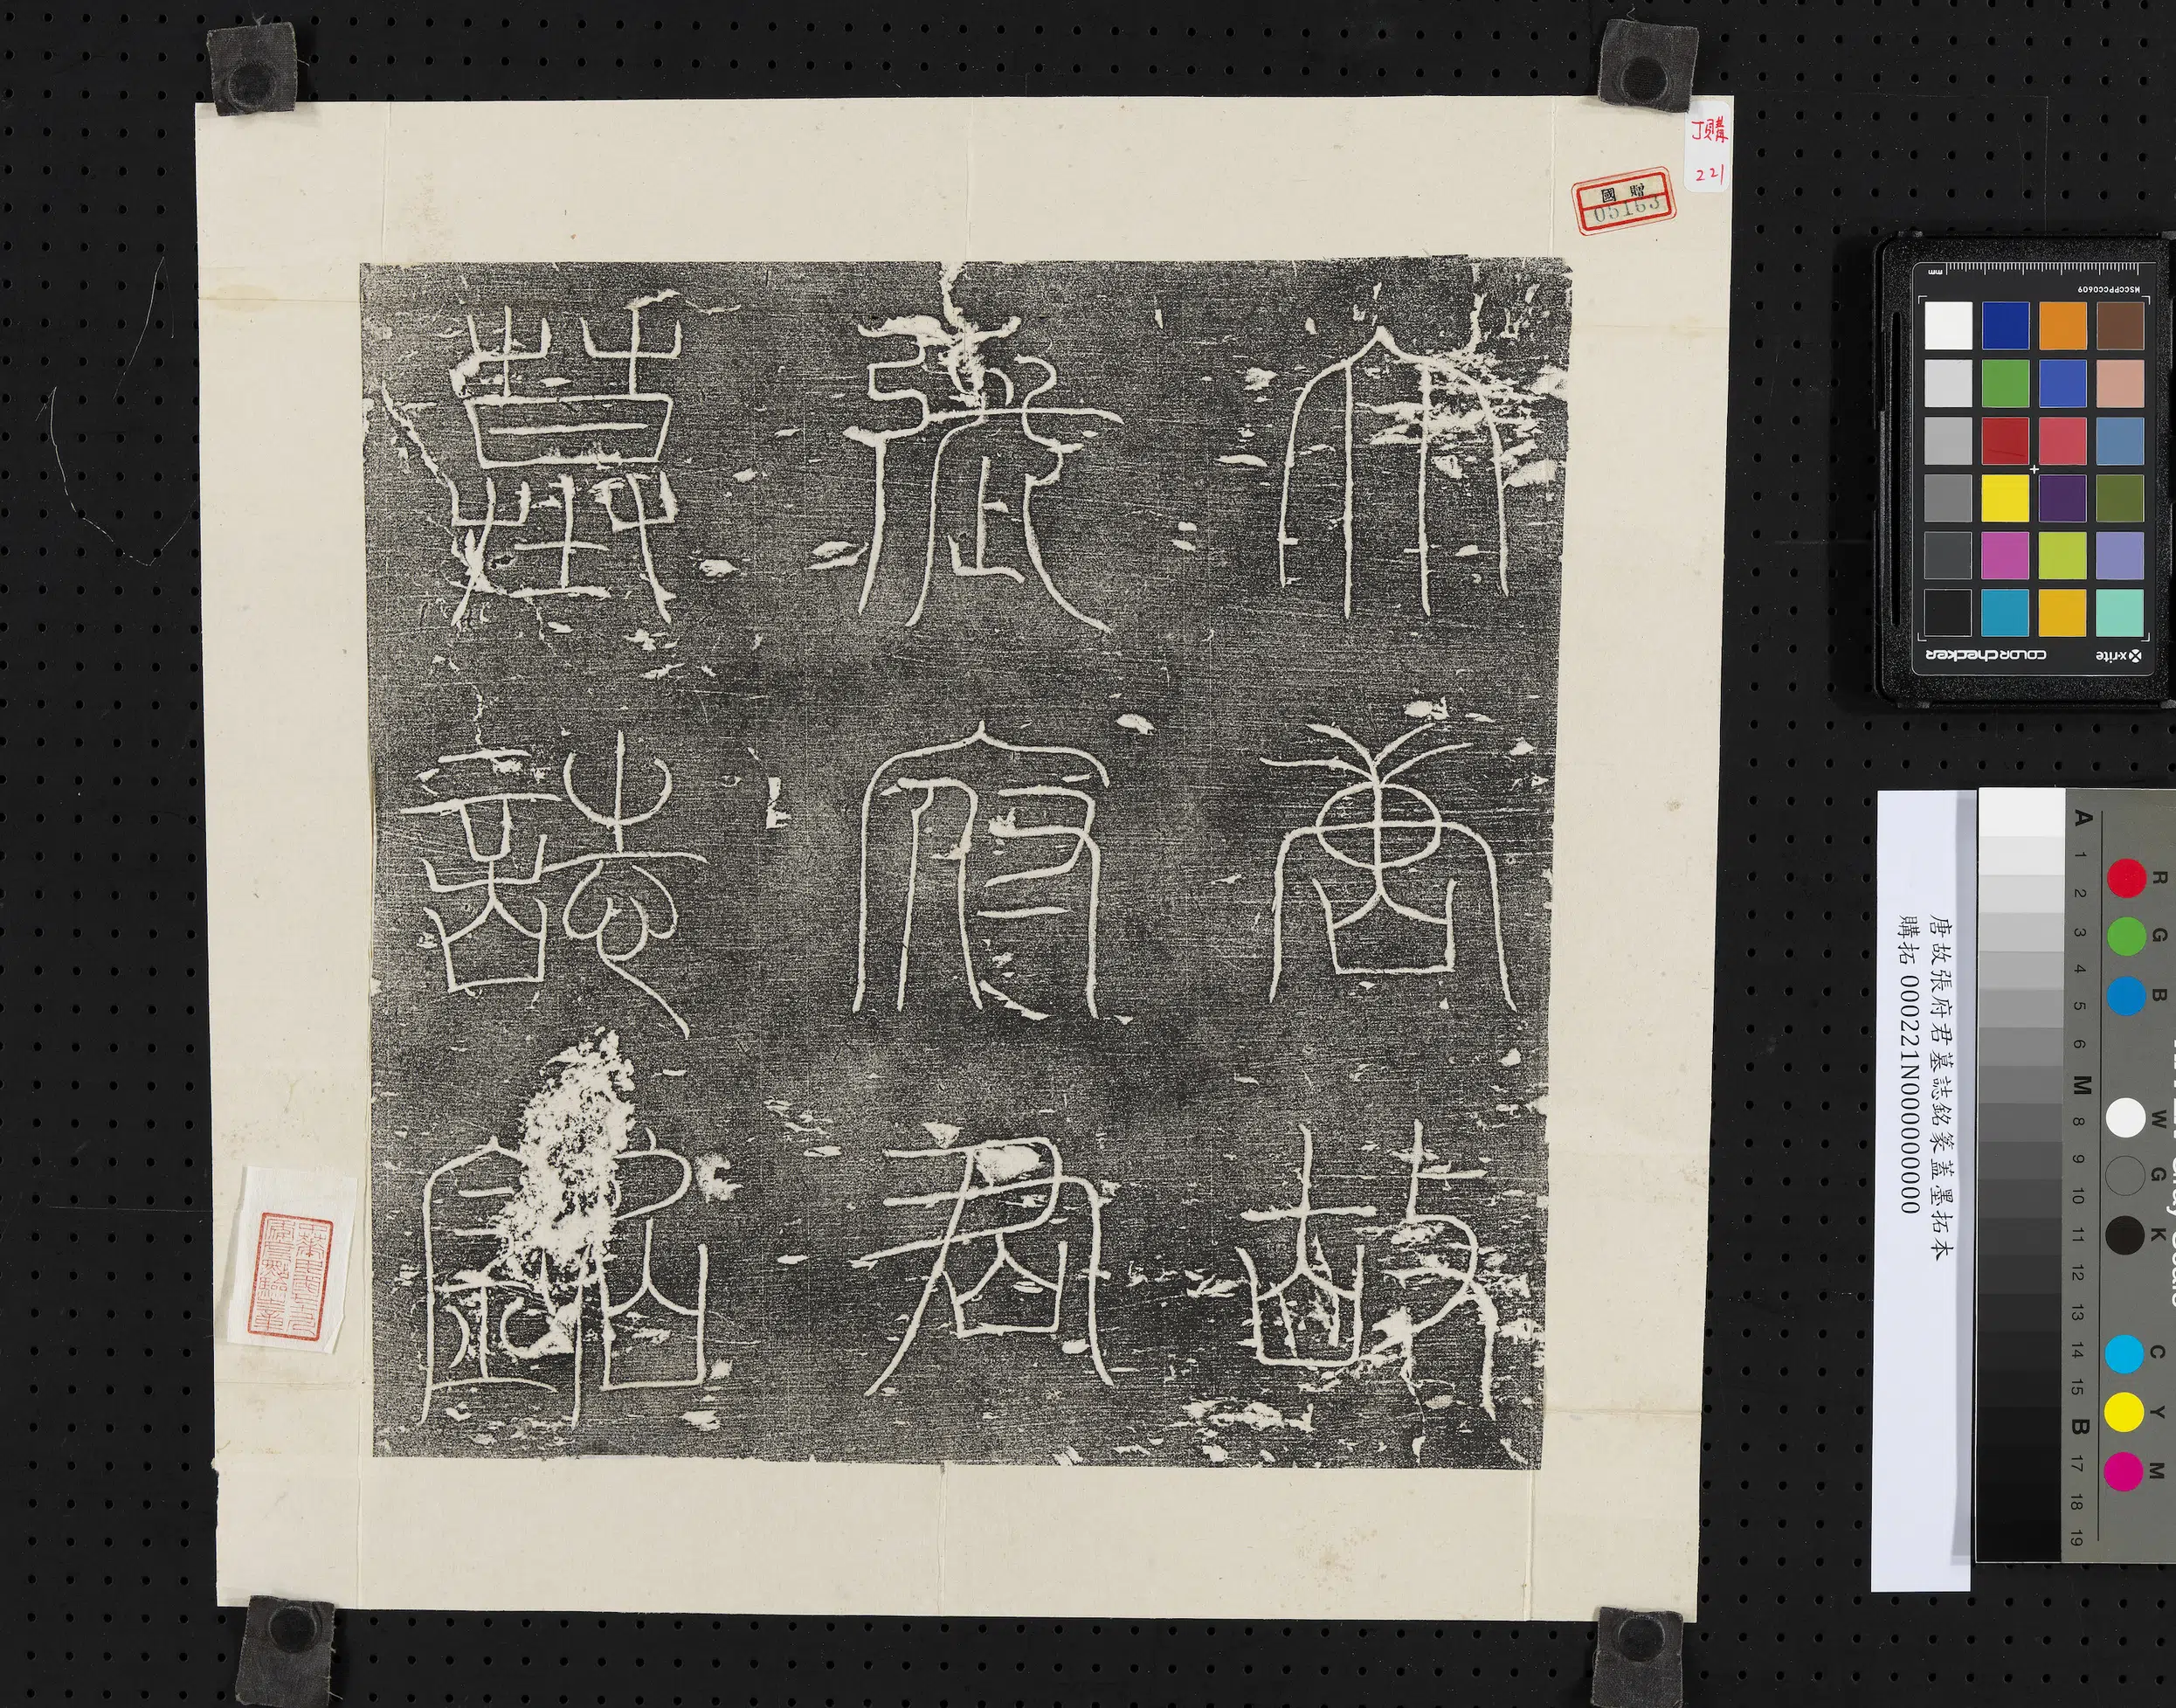 大唐故
張府君
墓誌銘
購
221
國 贈
05163
唐故張府君墓誌銘篆蓋墨拓本
購拓 000221N000000000
mm
MSCCPPCC0609
x-rite
colorchecker
A 1 2 3 4 5 6 M 8 9 10 11 12 13 14 15 B 17 18 19
R G B W G K C Y M